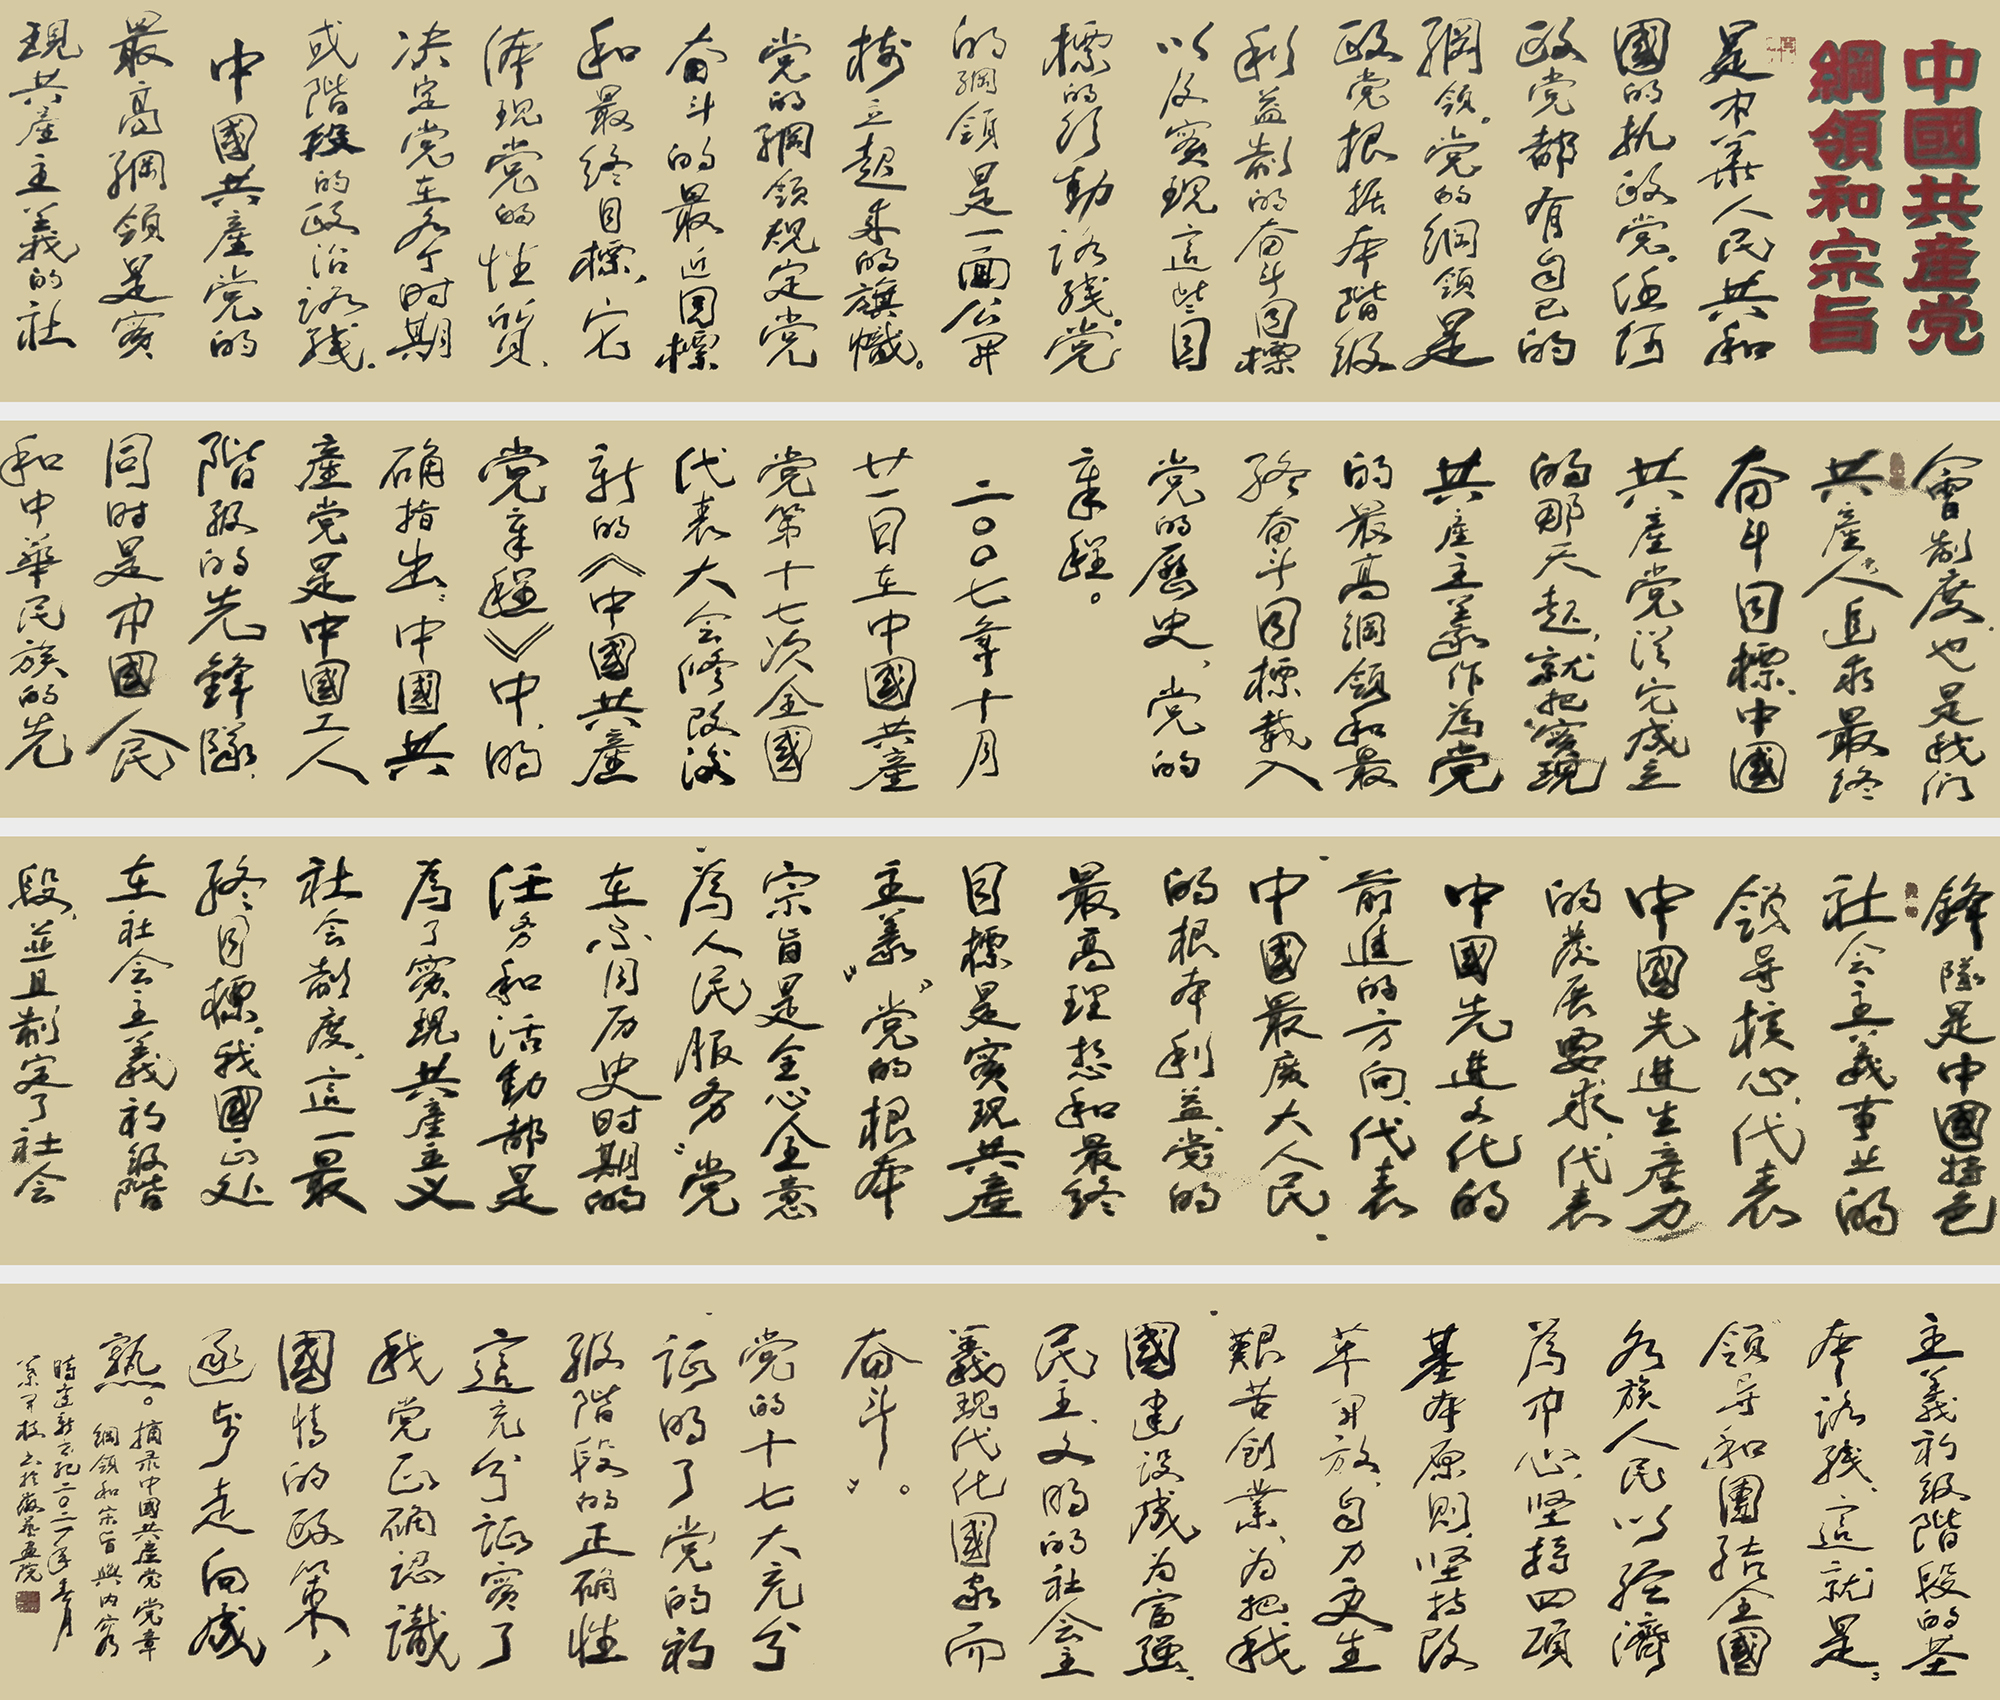 中國共産党
綱領和宗旨
是中華人民共和
國的执政党。任何
政党都有自己的
綱領。党的綱領是
政党根据本階级
利益制的奋斗目標
以及實現這些目
標的行動路线。党
的綱領是一面公开
树立起来的旗幟。
党的綱領规定党
奋斗的最近目標
和最終目標。它
体現党的性質、
决定党在各个时期
或階段的政治路线。
中國共産党的
最高綱領是實
現共産主義的社
會制度。也是我们
共産人追求最终
奋斗目標。中國
共産党從它成立
的那天起，就把實現
共産主義作為党
的最高綱領和最
終奋斗目標載入
党的歷史、党的
章程。
二〇〇七年十月
廿一日在中國共産
党第十七次全國
代表大会修改後
新的《中國共産
党章程》中，明
确指出：中國共
産党是中國工人
階级的先鋒隊，
同时是中國人民
和中華民族的先
鋒隊是中國特色
社会主義事业的
領导核心，代表
中國先進生産力
的發展要求，代表
中國先進文化的
前進的方向，代表
中國最廣大人民
的根本利益，党的
最高理想和最终
目標是實現共産
主義”。“党的根本
宗旨是全心全意
為人民服务”党
在不同历史时期的
任务和活動都是
為了實現共産主义
社会制度，這一最
終目標。我國正处
在社会主義初级階
段，並且制定了社会
主義初级階段的基
本路线，這就是：
領导和團结全國
各族人民以经濟
為中心，坚持四项
基本原则，坚持改
革开放，自力更生
艱苦创業，为把我
國建设成为富强、
民主、文明的社会主
義现代化國家而
奋斗”。
党的十七大充分
证明了党的初
级階段的正确性
這充分证實了
我党正确認識
國情的政策，
逐步走向成
熟。摘录中國共産党党章
綱領和宗旨與内容
時逢新世紀二〇二一年春月